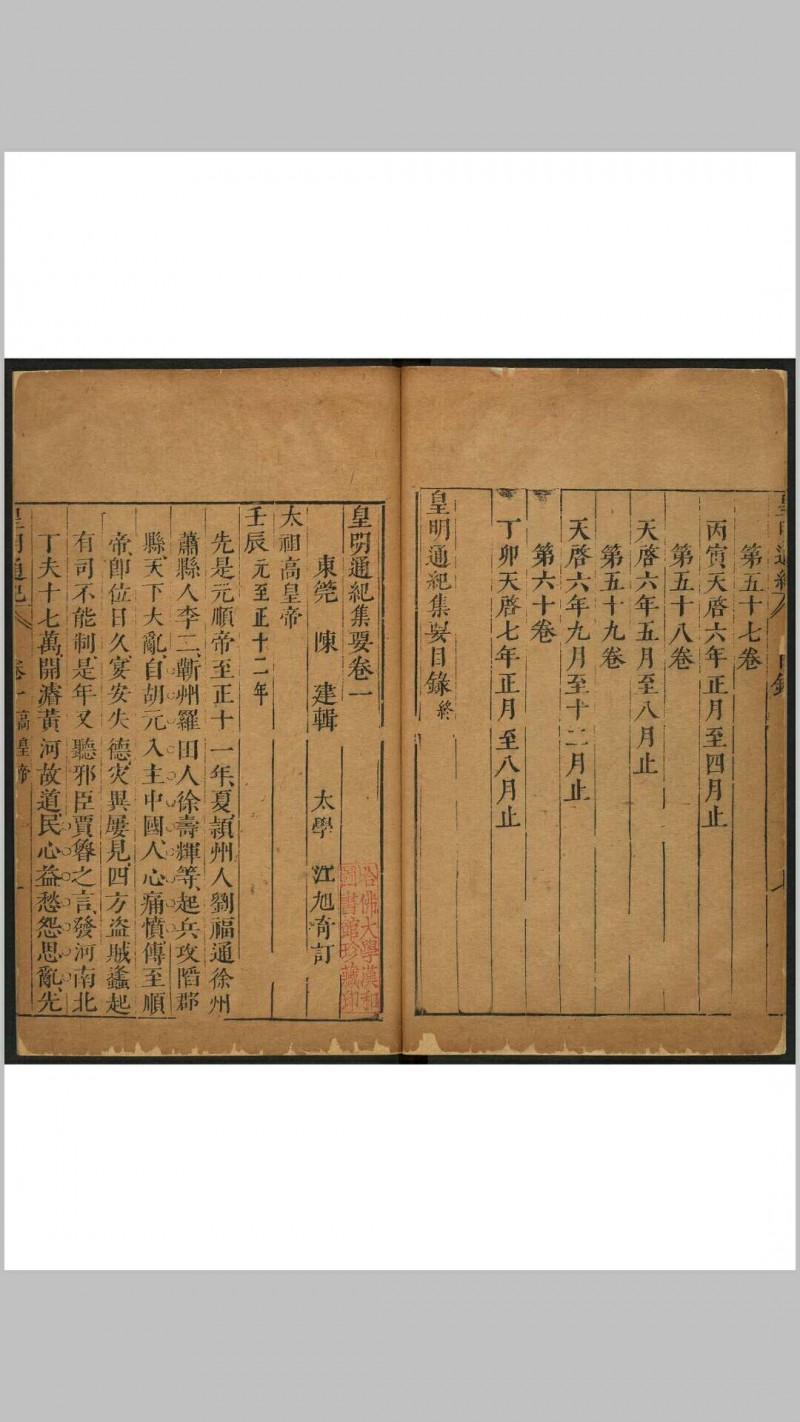 第五十七卷
丙寅天啓六年正月至四月止
第五十八卷
天啓六年五月至八月止
第五十九卷
天啓六年九月至十二月止
第六十卷
丁卯天啓七年正月至八月止
皇明通紀集要目錄終
皇明通紀集要卷一
東莞 陳 建輯 太學 江旭奇訂
太祖高皇帝
壬辰元至正十二年
先是元順帝至正十一年、夏、潁州人劉福通徐州
蕭縣人李二、蘄州羅田人徐壽輝等、起兵攻陷郡
縣、天下大亂、自胡元入主中國、人心痛憤傳至順
帝、卽位日久、宴安失德、灾異屢見、四方盜賊蠭起
有司不能制、是年又聽邪臣賈魯之言、發河南北
丁夫十七萬、開濬黃河故道、民心益愁怨思亂、先
皇明通紀 卷一 高皇帝 一
哈佛大學漢和
圖書館珍藏印